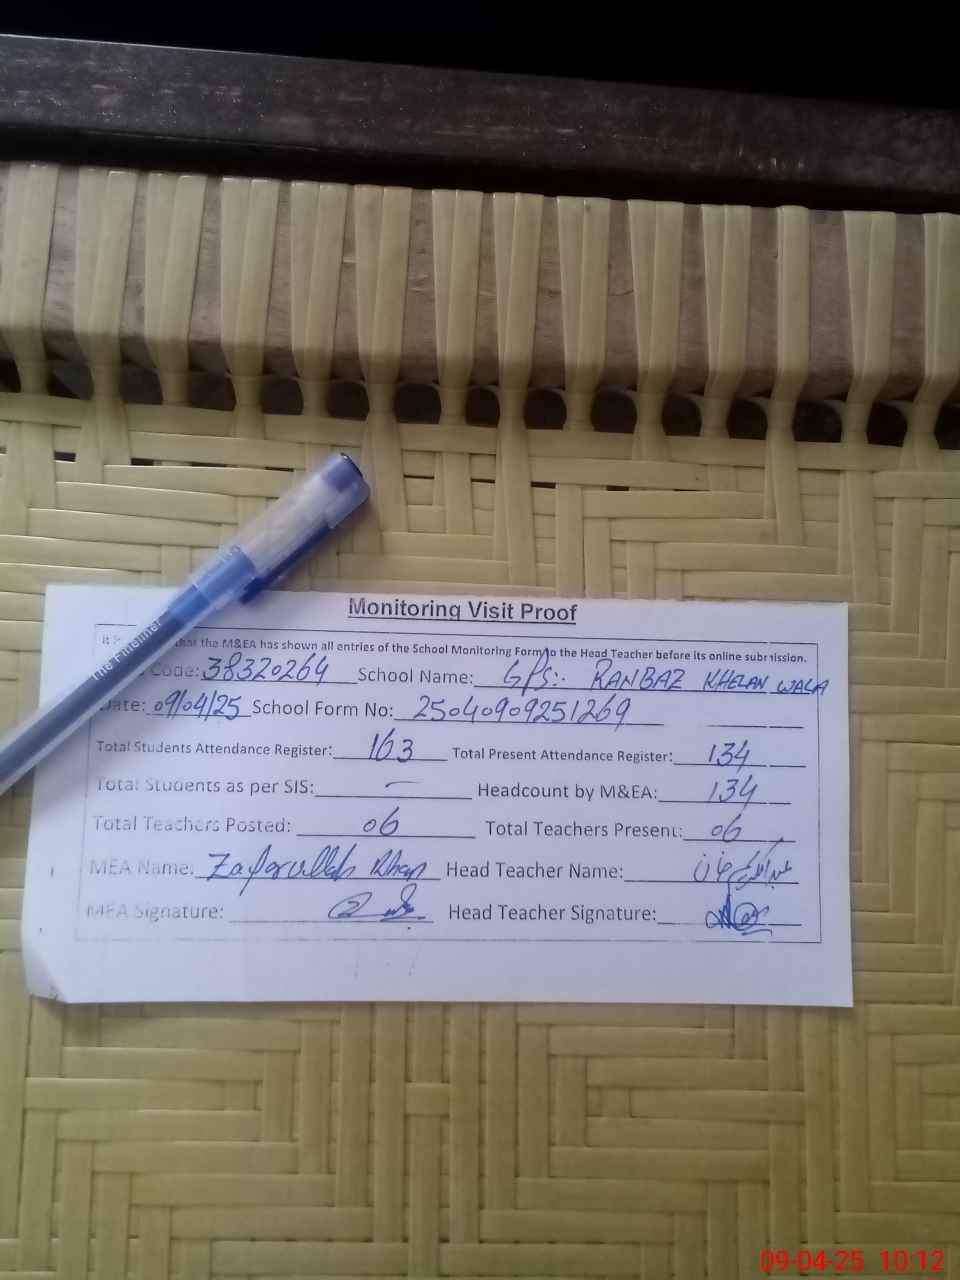 The Fineliner
Monitoring Visit Proof
that the M&EA has shown all entries of the School Monitoring Form to the Head Teacher before its online submission.
Code: 38320264 School Name: GPS:. RANBAZ KHELAN WALA
Date: 09/04/25 School Form No: 25040909251269
Total Students Attendance Register: 163 Total Present Attendance Register: 134
Total Students as per SIS: — Headcount by M&EA: 134
Total Teachers Posted: 06 Total Teachers Present: 06
MEA Name: Zafarullah Khan Head Teacher Name:
MEA Signature: Head Teacher Signature:
09-04-25 10:12